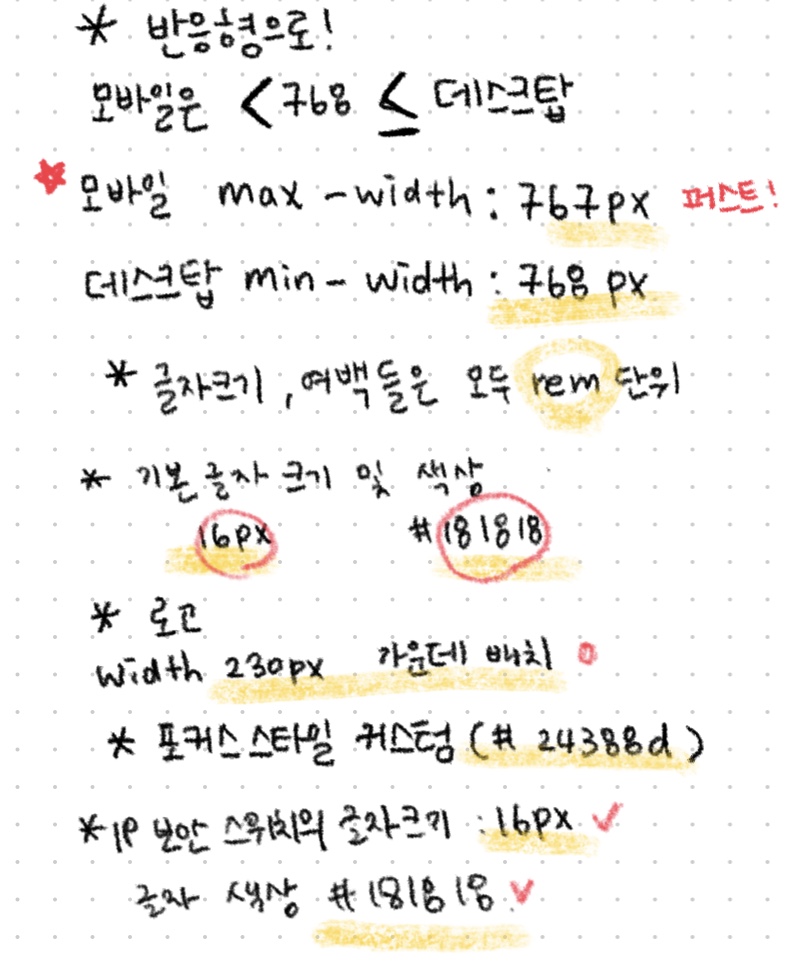 * 반응형으로!
모바일은 < 768 ≤ 데스크탑
모바일 max-width : 767px 퍼스트!
데스크탑 min-width : 768 px
* 글자크기, 여백들은 모두 rem 단위
* 기본 글자 크기 및 색상
16px #181818
* 로고
width 230px 가운데 배치
* 포커스 스타일 커스텀 (# 24388d)
* IP 보안 스위치의 글자크기 : 16px ✓
글자 색상 #181818. ✓